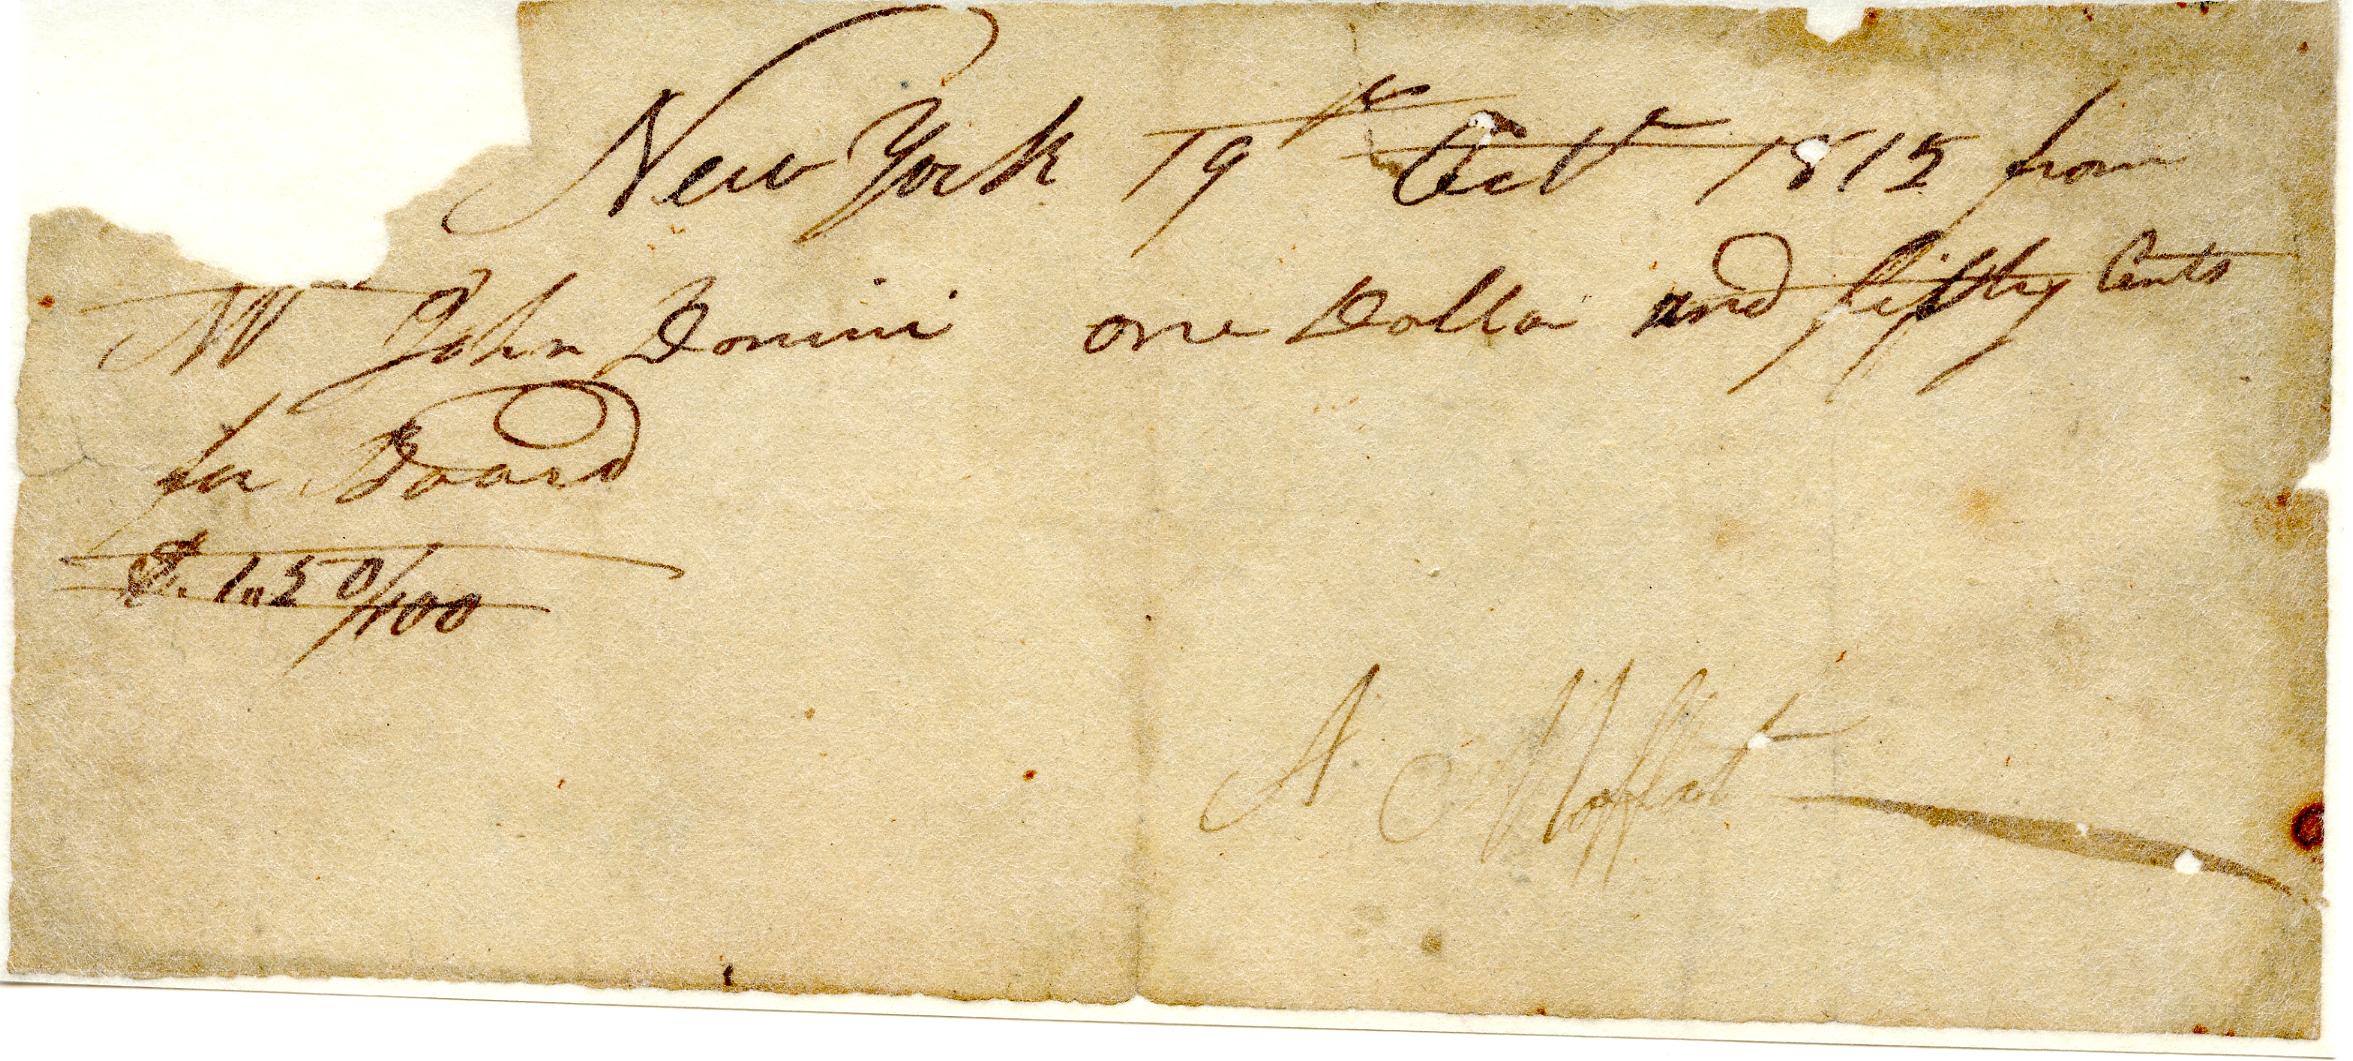 New York 19th Octr 1815 from
Mr John Domini one Dollar and fifty Cents
for Board
$. 1.50/100
A Moffat